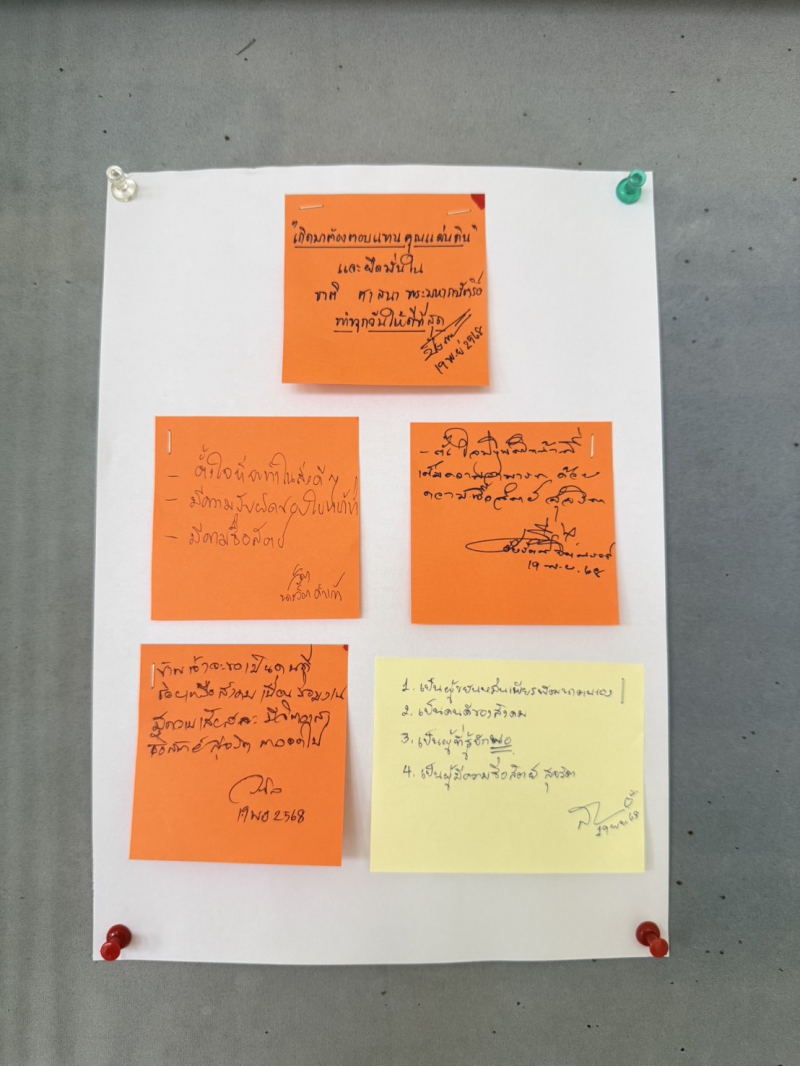 "เกิดมาต้องตอบแทนคุณแผ่นดิน"
และยึดมั่นใน
ชาติ ศาสนา พระมหากษัตริย์
ทำทุกวันให้ดีที่สุด
19 พ.ย 2568
- ตั้งใจที่จะทำในสิ่งดีๆ
- มีความรับผิดชอบในหน้าที่
- มีความซื่อสัตย์
- ตั้งใจปฏิบัติหน้าที่
เต็มความสามารถ ด้วย
ความซื่อสัตย์ สุจริต
19 พ.ย. 68
ข้าพเจ้าจะขอเป็นคนที่
ช่วยเหลือสังคม เพื่อนร่วมงาน
มีความเสียสละ มีจิตอาสา
ซื่อสัตย์ สุจริต ตลอดไป
19 พย 2568
1. เป็นผู้ขยันหมั่นเพียรพัฒนาตนเอง
2. เป็นคนดีของสังคม
3. เป็นผู้ที่รู้จักพอ
4. เป็นผู้มีความซื่อสัตย์ สุจริต
19 พย 68